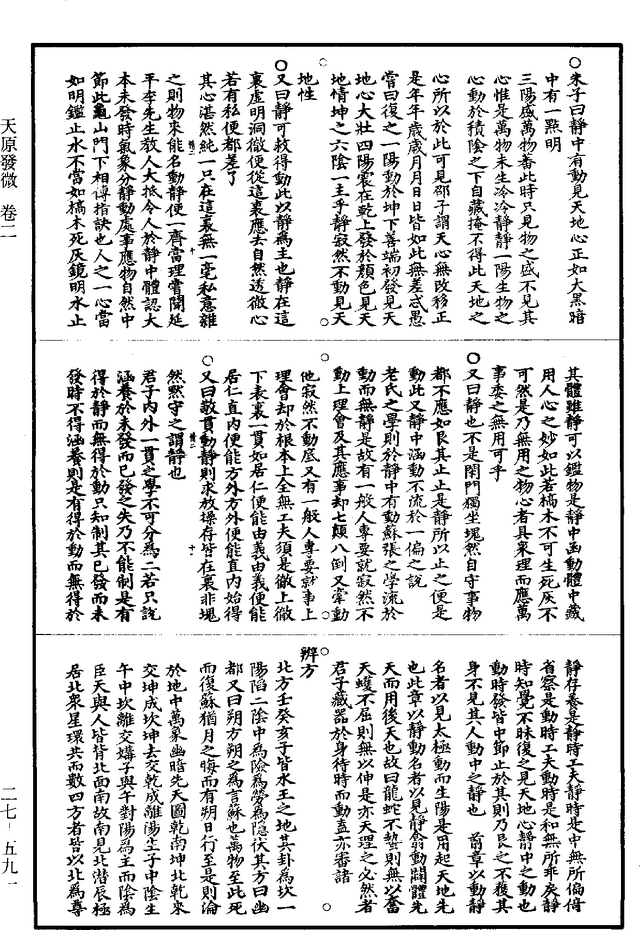 天原發微 卷二
○朱子曰靜中有動見天地心正如大黑暗
中有一點明
三陽盛萬物蕃此時只見物之盛不見其
心惟是萬物未生冷冷靜靜一陽生物之
心動於積陰之下自藏掩不得此天地之
心所以於此可見邵子謂天心無改移正
是年年歲歲月月日日皆如此無差忒愚
嘗曰復之一陽動於坤下善端初發見天
地心大壯四陽震在乾上發於顏色見天
地情坤之六陰一主乎靜寂然不動見天
地性
○又曰靜可救得動此以靜為主也靜在這
裏虛明洞徹便從這裏應去自然透徹心
若有私便都差了
其心湛然純一只在這裏無一毫私意雜
之則物來能名動靜便一齊當理嘗聞延
平李先生教人大抵令人於靜中體認大
本未發時氣象分靜動處事應物自然中
節此龜山門下相傳指訣也人之一心當
如明鑑止水不當如槁木死灰鏡明水止
其體雖靜可以鑑物是靜中涵動體中藏
用人心之妙如此若槁木不可生死灰不
可然是乃無用之物心者具衆理而應萬
事委之無用可乎
○又曰靜也不是閉門獨坐塊然自守事物
都不應如艮其止止是靜所以止之便是
動此又靜中涵動不流於一偏之說
老氏之學則於靜中有動蘇張之學流於
動而無靜是故有一般人專要就寂然不
動上理會及其應事却七顛八倒又牽動
他寂然不動底又有一般人專要就事上
理會却於根本上全無工夫須是徹上徹
下表裏一貫如居仁便能由義由義便能
居仁直內便能方外方外便能直內始得
○又曰敬貫動靜則求放操存皆在裏非塊
然默守之謂靜也
君子內外一貫之學不可分為二若只說
涵養於未發而已發之失乃不能制是有
得於靜而無得於動只知制其已發而未
發時不得涵養則是有得於動而無得於
靜存養是靜時工夫靜時是中無所偏倚
省察是動時工夫動時是和無所乖戾靜
時知覺不昧復之見天地心靜中之動也
動時發皆中節止於其則乃艮之不獲其
身不見其人動中之靜也 前章以動靜
名者以見太極動而生陽是用起天地先
也此章以靜動名者以見靜翕動闢體先
天而用後天也故曰龍蛇不蟄則無以奮
天蠖不屈則無以伸是亦天理之必然者
君子藏器於身待時而動盍亦審諸
辨方
北方壬癸亥子皆水王之地其卦為坎一
陽陷二陰中為險為勞為隱伏其方曰幽
都又曰朔方朔之為言蘇也萬物至此死
而復蘇猶月之晦而有朔日行至是則淪
於地中萬象幽暗先天圖乾南坤北乾來
交坤成坎坤去交乾成離陽生子中陰生
午中坎離交媾子與午對陽為主而陰為
臣天與人皆背北面南故南見北潛辰極
居北衆星環共而數四方者皆以北為尊
二七-五九一